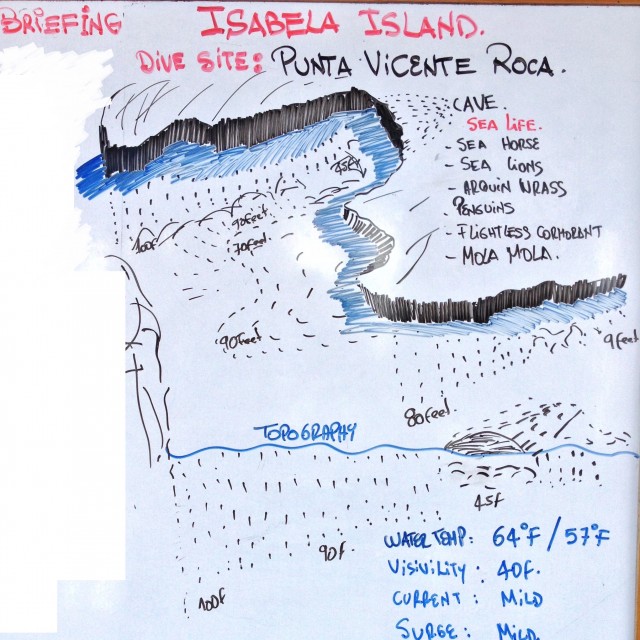 BRIEFING ISABELA ISLAND.
DIVE SITE: PUNTA VICENTE ROCA.
CAVE.
SEA LIFE.
- SEA HORSE
- SEA LIONS
- ARQUIN WRASS
. PENGUINS
- FLIGHTLESS CORMORANT
- MOLA MOLA.
45f
90feet
100f
70feet
90feet
9feet
80feet
TOPOGRAPHY
45f
90f.
100f
WATER TEMP: 64°F / 57°F
VISIVILITY: 40F.
CURRENT: MILD
SURGE: MILD